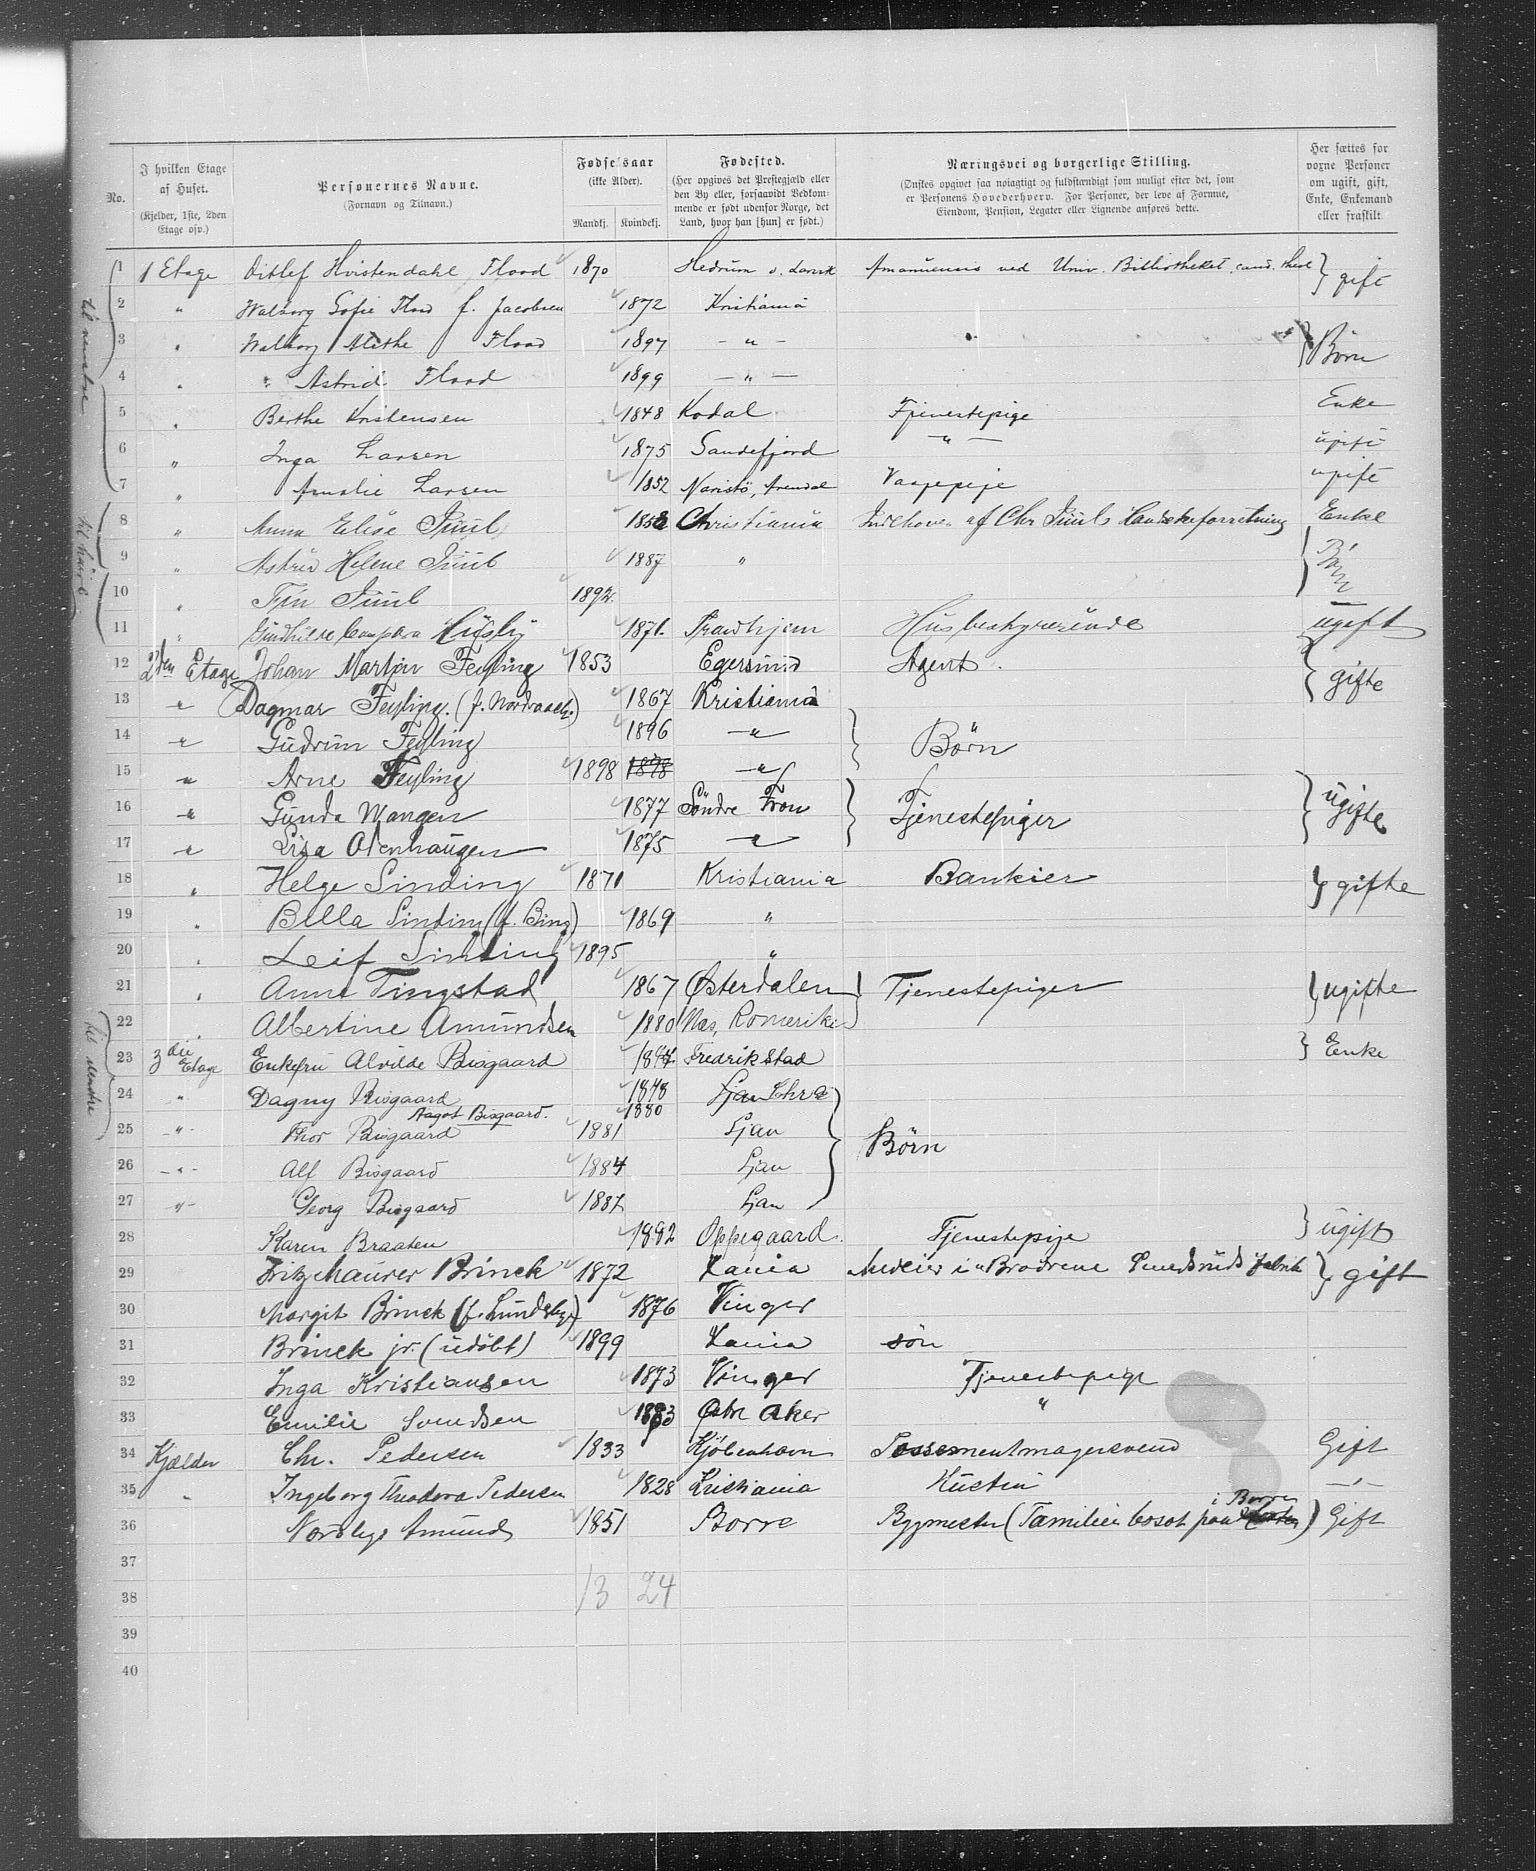 No.
J hvilken Etage af Huset.
(Kjelder, 1ste, 2den Etage osv.)
Personernes Navne.
(Fornavn og Tilnavn.)
Fødselsaar
(ikke Alder).
Mandkj. Kvindekj.
Fødested.
(Her opgives det Prestegjæld eller den By eller, forsaavidt Vedkommende er født udenfor Norge, det Land, hvor han [hun] er født.)
Næringsvei og borgerlige Stilling.
(Ønskes opgivet saa nøiagtigt og fuldstændigt som muligt efter det, som er Personens Hovederhverv. For Personer, der leve af Formue, Eiendom, Pension, Legater eller Lignende anføres dette.
Her sættes for voxne Personer om ugift, gift, Enke, Enkemand eller fraskilt
til venstre
1 1 Etage Ditlef Hvistendahl Flood 1870 Hedrum v. Larvik Amanuensis ved Univ. Bibliotheket, cand. theol } gift
2 " Walborg Sofie Flood f. Jacobsen 1872 Kristiania
3 " Walborg Alethe Flood 1897 - " - } Børn
4 " " Astrid Flood 1899 - " -
5 " Berthe Kristensen 1848 Kodal Tjenestepige Enke
6 " Inga Larsen 1875 Sandefjord - " - ugift
7 " Amalie Larsen 1852 Arendal Vaagepige ugift
til høire
8 " Anna Elise Juul Christiania Indehaver af Chr Juuls Handskeforretning Enke
9 " Astrid Helene Juul 1887 " } Børn
10 " Juul 1892
11 " Høyby 1871. Trondhjem Husbestyrerinde ugift
12 2den Etage Johan Martin Feyling 1853 Egersund Agent. } gifte
13 " Dagmar Feyling. (f. Nordraach.) 1867 Kristiania
14 " Gudrun Feyling 1896 - " } Børn
15 " Arne Feyling 1898 1898 - "
16 " Gunda Wangen 1877 Söndre Fron } Tjenestepiger } ugifte
17 " Lisa Odenhaugen 1875 - "
18 " Helge Sinding 1871 Kristiania Bankier } gifte
19 " Bella Sinding (f. Bing) 1869 "
20 " Leif Sinding 1895 "
21 " Anne Tingstad 1867 Østerdalen } Tjenestepiger } ugifte
22 " Albertine Amundsen 1880 Næs, Romerike
til venstre
23 3die Etage Enkefru Alvilde Bisgaard Fredrikstad } Enke
24 " Dagny Bisgaard 1878 Ljan Chra }
Aagot Bisgaard. 1880
25 - " - Thor Bisgaard 1881 Ljan Børn
26 - " - Alf Bisgaard 1884 Ljan
27 " - Georg Bisgaard 1887 Ljan
28 Karen Braaten 1882 Oppegaard. Tjenestepige } ugift
29 Fritz Maurer Brinck 1872 Xania Medeier i "Brødrene Fabrik } gift
30 Margit Brinck (f. Lundeby) 1876 Vinger
31 Brinck jr. (udöbt) 1899 Xania sön
32 Inga Kristiansen 1873 Vinger Tjenestepige
33 Emilie Svendsen 1883 Østre Aker "
34 Kjælder Chr. Pedersen 1833 Kjöbenhavn Possementmagersvend Gift
35 " Ingeborg Theodora Pedersen 1828 Kristiania Hustru - " -
36 Nordby Amund 1851 Borre Bygmester (Familien bosat paa i Borre) Gift
37
38 13 24
39
40